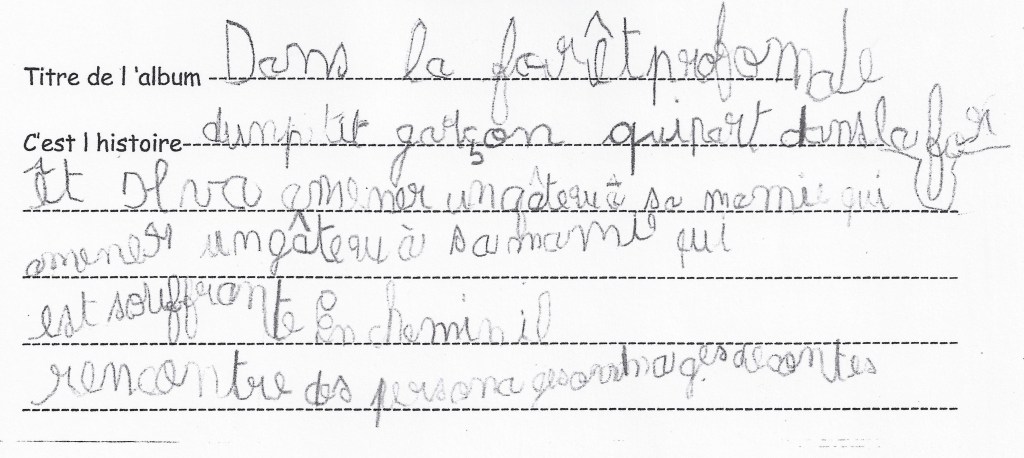 Titre de l 'album Dans la forêt profomde
C'est l histoire d'un ptit garçon qui part dans la for
êt Il va amener un gâteau à sa mamie qui
amener un gâteau à sa mamie qui
est souffrante En chemin il
rencontre des personages de contes